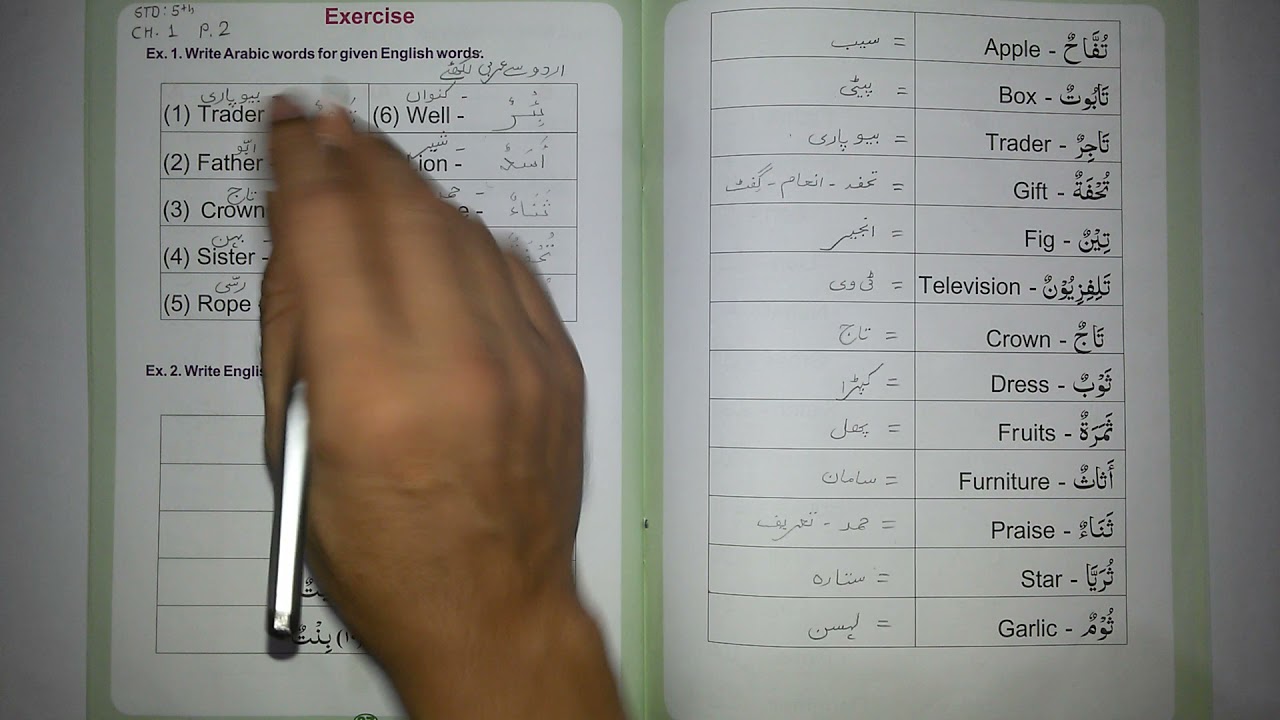 STD: 5th
CH. 1 P. 2
Exercise
Ex. 1. Write Arabic words for given English words.
اردو سے عربی لکھئے
بیوپاری
(1) Trader
کنواں
(6) Well - بِئْرٌ
ابّو
(2) Father
شیر
ion - أَسَدٌ
تاج
(3) Crown
e - ثَنَاءٌ
بہن
(4) Sister -
رسّی
(5) Rope
Ex. 2. Write Engli
(١٠) بِنْتٌ
تُفَّاحٌ - Apple = سیب
تَابُوتٌ - Box = پیٹی
تَاجِرٌ - Trader = بیوپاری
تُحْفَةٌ - Gift = تحفہ - انعام - گِفٹ
تِيْنٌ - Fig = انجیر
تَلِفِزِيُوْنٌ - Television = ٹی وی
تَاجٌ - Crown = تاج
ثَوْبٌ - Dress = کپڑا
ثَمَرَةٌ - Fruits = پھل
أَثَاثٌ - Furniture = سامان
ثَنَاءٌ - Praise = حمد - تعریف
ثُرَيَّا - Star = ستارہ
ثُوْمٌ - Garlic = لہسن